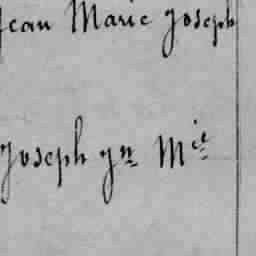 Jean Marie Joseph
Joseph Jn Mie